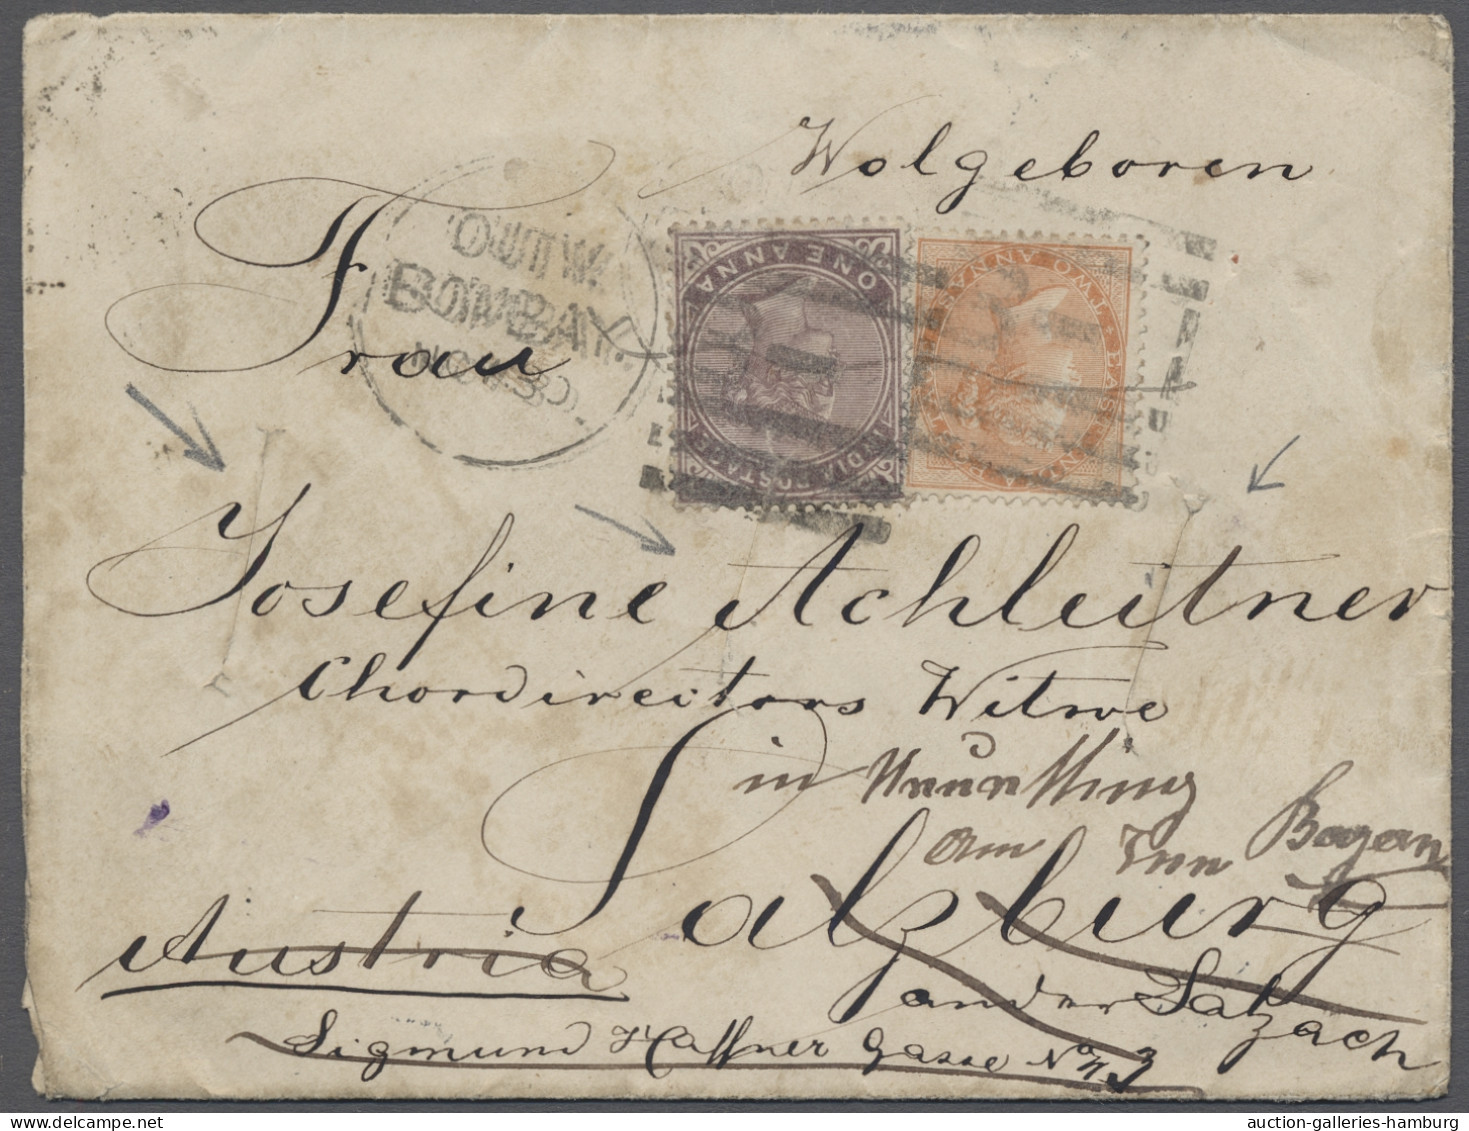 Wolgeboren
Frau
OUTW.
BOMBAY.
ONE ANNA
INDIA POSTAGE
TWO ANNAS
EAST INDIA
Josefine Achleitner
Chordirectors Witwe
in
am Inn Bayern
Salzburg
Austria
an der Salzach
Sigmund Haffner Gasse No 3
auction-galleries-hamburg